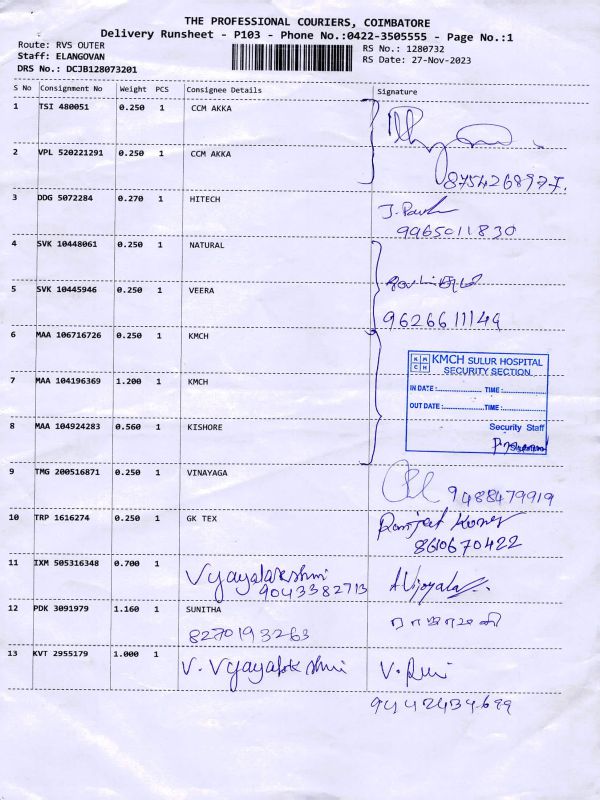 THE PROFESSIONAL COURIERS, COIMBATORE
Delivery Runsheet - P103 - Phone No.:0422-3505555 - Page No.:1
Route: RVS OUTER
Staff: ELANGOVAN
DRS No.: DCJB128073201
RS No.: 1280732
RS Date: 27-Nov-2023
S No Consignment No Weight PCS Consignee Details Signature
1 TSI 480051 0.250 1 CCM AKKA
2 VPL 520221291 0.250 1 CCM AKKA
3 DDG 5072284 0.270 1 HITECH
9965011830
4 SVK 10448061 0.250 1 NATURAL
5 SVK 10445946 0.250 1 VEERA
9626611149
6 MAA 106716726 0.250 1 KMCH
KMCH SULUR HOSPITAL
SECURITY SECTION
7 MAA 104196369 1.200 1 KMCH
IN DATE : TIME :
OUT DATE : TIME :
8 MAA 104924283 0.560 1 KISHORE
Security Staff
9 TMG 200516871 0.250 1 VINAYAGA
9488479919
10 TRP 1616274 0.250 1 GK TEX
Ranjeet Kumar
8610670422
11 IXM 505316348 0.700 1 Vyayalakshmi
9043382713
12 PDK 3091979 1.160 1 SUNITHA
8270193263
13 KVT 2955179 1.000 1 V. Vyayalakshmi